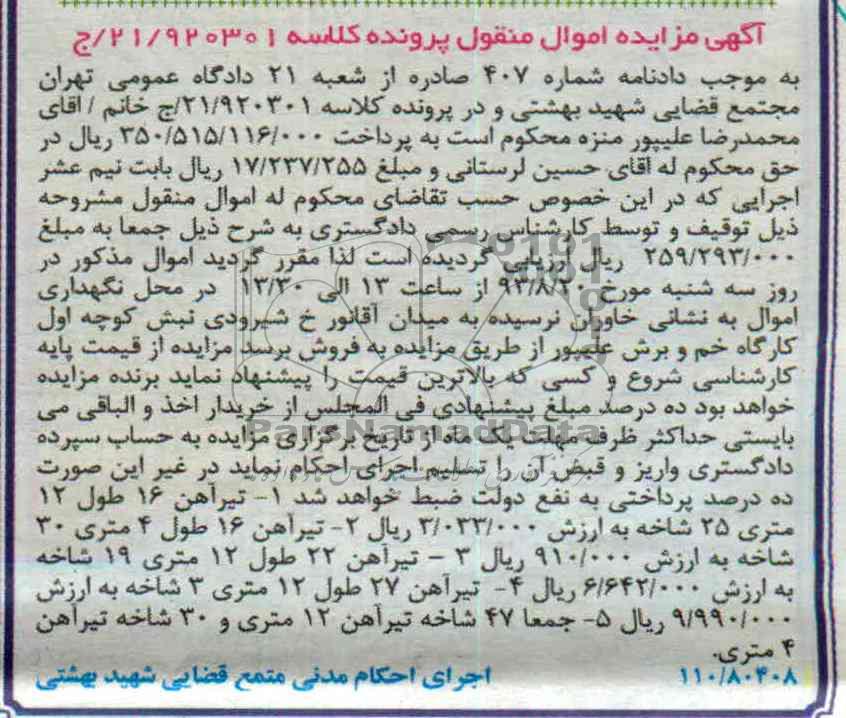 آگهی مزایده اموال منقول پرونده کلاسه ۲۱/۹۲۰۳۰۱/ج
به موجب دادنامه شماره ۴۰۷ صادره از شعبه ۲۱ دادگاه عمومی تهران
مجتمع قضایی شهید بهشتی و در پرونده کلاسه ۲۱/۹۲۰۳۰۱/ج خانم / اقای
محمدرضا علیپور منزه محکوم است به پرداخت ۳۵۰/۵۱۵/۱۱۶/۰۰۰ ریال در
حق محکوم له اقای حسین لرستانی و مبلغ ۱۷/۲۳۷/۲۵۵ ریال بابت نیم عشر
اجرایی که در این خصوص حسب تقاضای محکوم له اموال منقول مشروحه
ذیل توقیف و توسط کارشناس رسمی دادگستری به شرح ذیل جمعا به مبلغ
۲۵۹/۲۹۳/۰۰۰ ریال ارزیابی گردیده است لذا مقرر گردید اموال مذکور در
روز سه شنبه مورخ ۹۳/۸/۲۰ از ساعت ۱۳ الی ۱۳/۳۰ در محل نگهداری
اموال به نشانی خاوران نرسیده به میدان آقانور خ شیرودی نبش کوچه اول
کارگاه خم و برش علیپور از طریق مزایده به فروش برسد مزایده از قیمت پایه
کارشناسی شروع و کسی که بالاترین قیمت را پیشنهاد نماید برنده مزایده
خواهد بود ده درصد مبلغ پیشنهادی فی المجلس از خریدار اخذ و الباقی می
بایستی حداکثر ظرف مهلت یک ماه از تاریخ برگزاری مزایده به حساب سپرده
دادگستری واریز و قبض آن را تسلیم اجرای احکام نماید در غیر این صورت
ده درصد پرداختی به نفع دولت ضبط خواهد شد ۱- تیرآهن ۱۶ طول ۱۲
متری ۲۵ شاخه به ارزش ۳/۰۳۳/۰۰۰ ریال ۲- تیرآهن ۱۶ طول ۴ متری ۳۰
شاخه به ارزش ۹۱۰/۰۰۰ ریال ۳ – تیرآهن ۲۲ طول ۱۲ متری ۱۹ شاخه
به ارزش ۶/۶۴۲/۰۰۰ ریال ۴- تیرآهن ۲۷ طول ۱۲ متری ۳ شاخه به ارزش
۹/۹۹۰/۰۰۰ ریال ۵- جمعا ۴۷ شاخه تیرآهن ۱۲ متری و ۳۰ شاخه تیرآهن
۴ متری.
۱۱۰/۸۰۴۰۸ اجرای احکام مدنی متمع قضایی شهید بهشتی
ParsNamadData